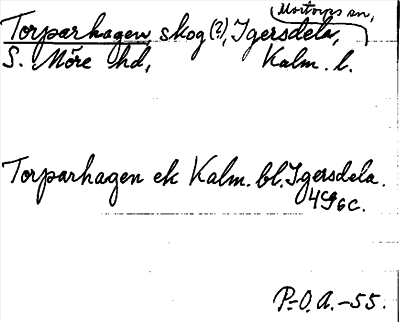 Mortorps sn,
Torparhagen, skog (?), Igersdela,
S. Möre hd, Kalm. l.
Torparhagen ek Kalm. bl. Igersdela.
4G6c.
P.-O. A. -55.